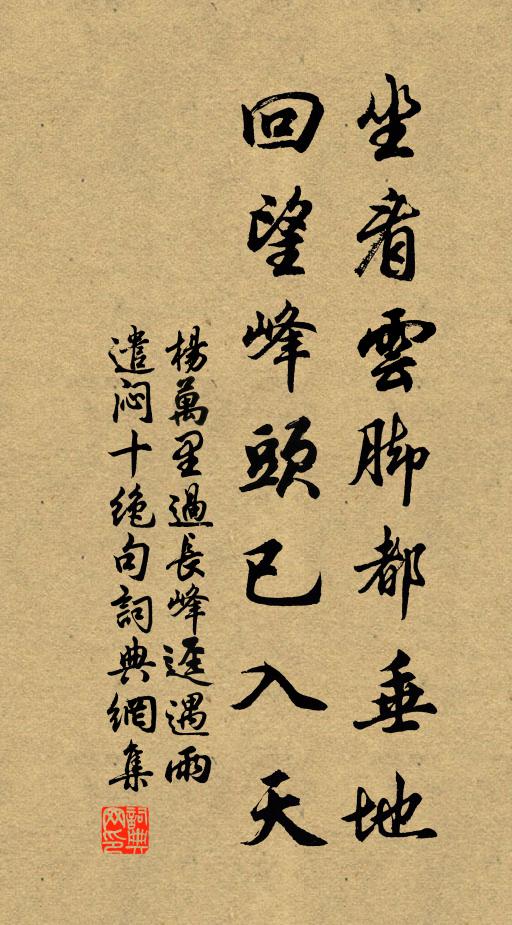 坐看雲脚都垂地
回望峰頭已入天
楊萬里過長峰逕遇雨
遣悶十絶句詞典網集
詞典网印